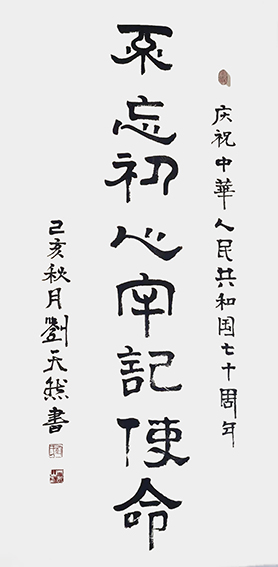 庆祝中華人民共和国七十周年
不忘初心牢記使命
己亥秋月劉天然書